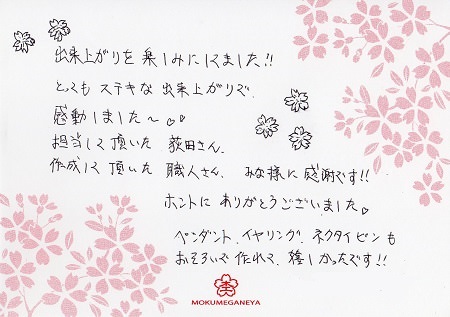 出来上がりを楽しみにしてました!!
とってもステキな出来上がりで、
感動しました〜♡♡
担当して頂いた 荻田さん、
作成して頂いた 職人さん、みな様に感謝です!!
ホントにありがとうございました♡
ペンダント、イヤリング、ネクタイピンも
おそろいで作れて、嬉しかったです!!
杢
MOKUMEGANEYA